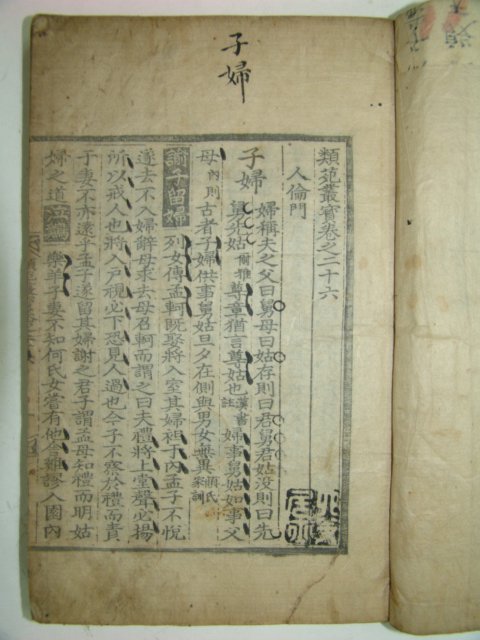 子婦
類苑叢寶卷之二十六
人倫門
子婦 婦稱夫之父曰舅母曰姑存則曰君舅君姑沒則曰先
舅先姑 爾雅 尊章猶言尊姑也 漢書註 婦事舅姑如事父
母 內則 古者子婦供事舅姑旦夕在側與男女無異 顏氏家訓
諭子留婦 列女傳孟軻旣娶將入室其婦袒于內孟子不悅
遂去不入婦辭母求去母召軻而謂之曰夫禮將上堂聲必揚
所以戒人也將入戶視必下恐見人過也今子不察於禮而責
于妻不亦遠乎孟子遂留其婦謝之君子謂孟母知禮而明姑
婦之道 樂羊子妻不知何氏女嘗有他舍雞謬入園內